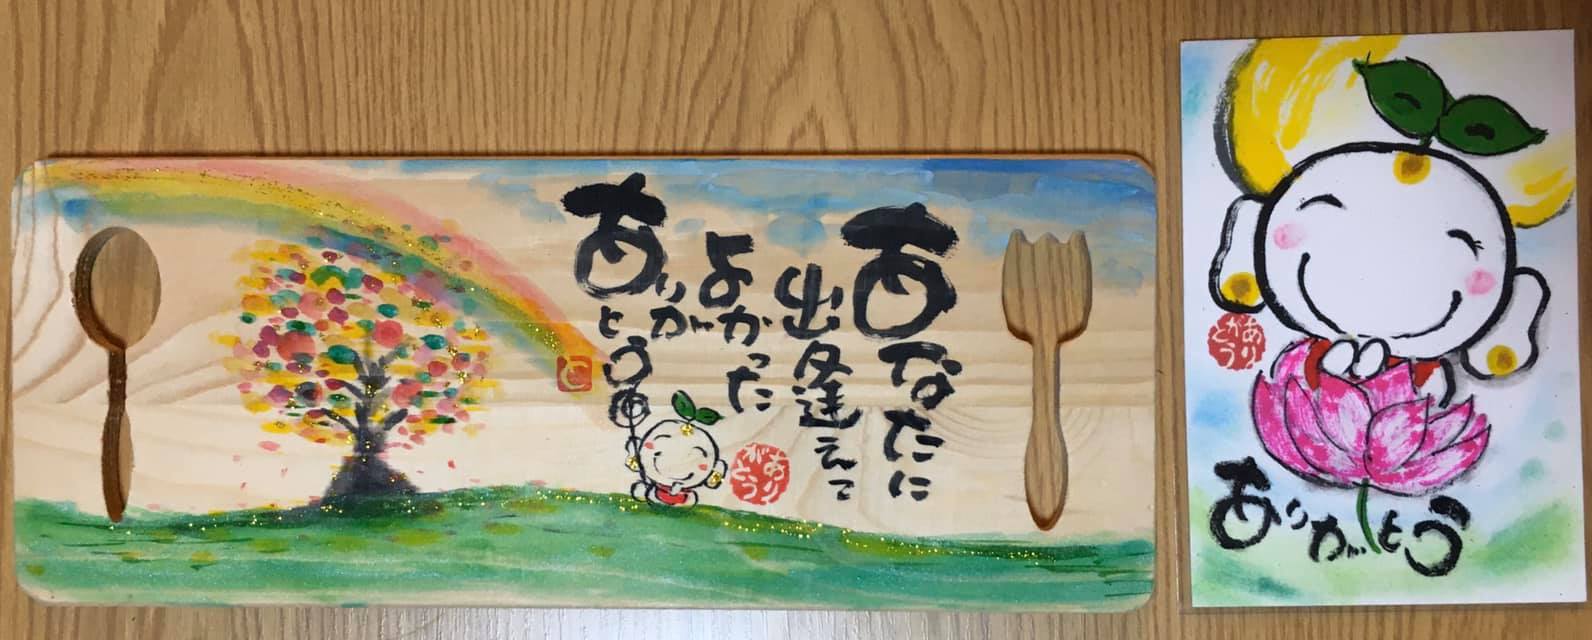 あなたに
出逢えて
よかった
ありがとう
と
ありがとう
ありがとう
ありがとう